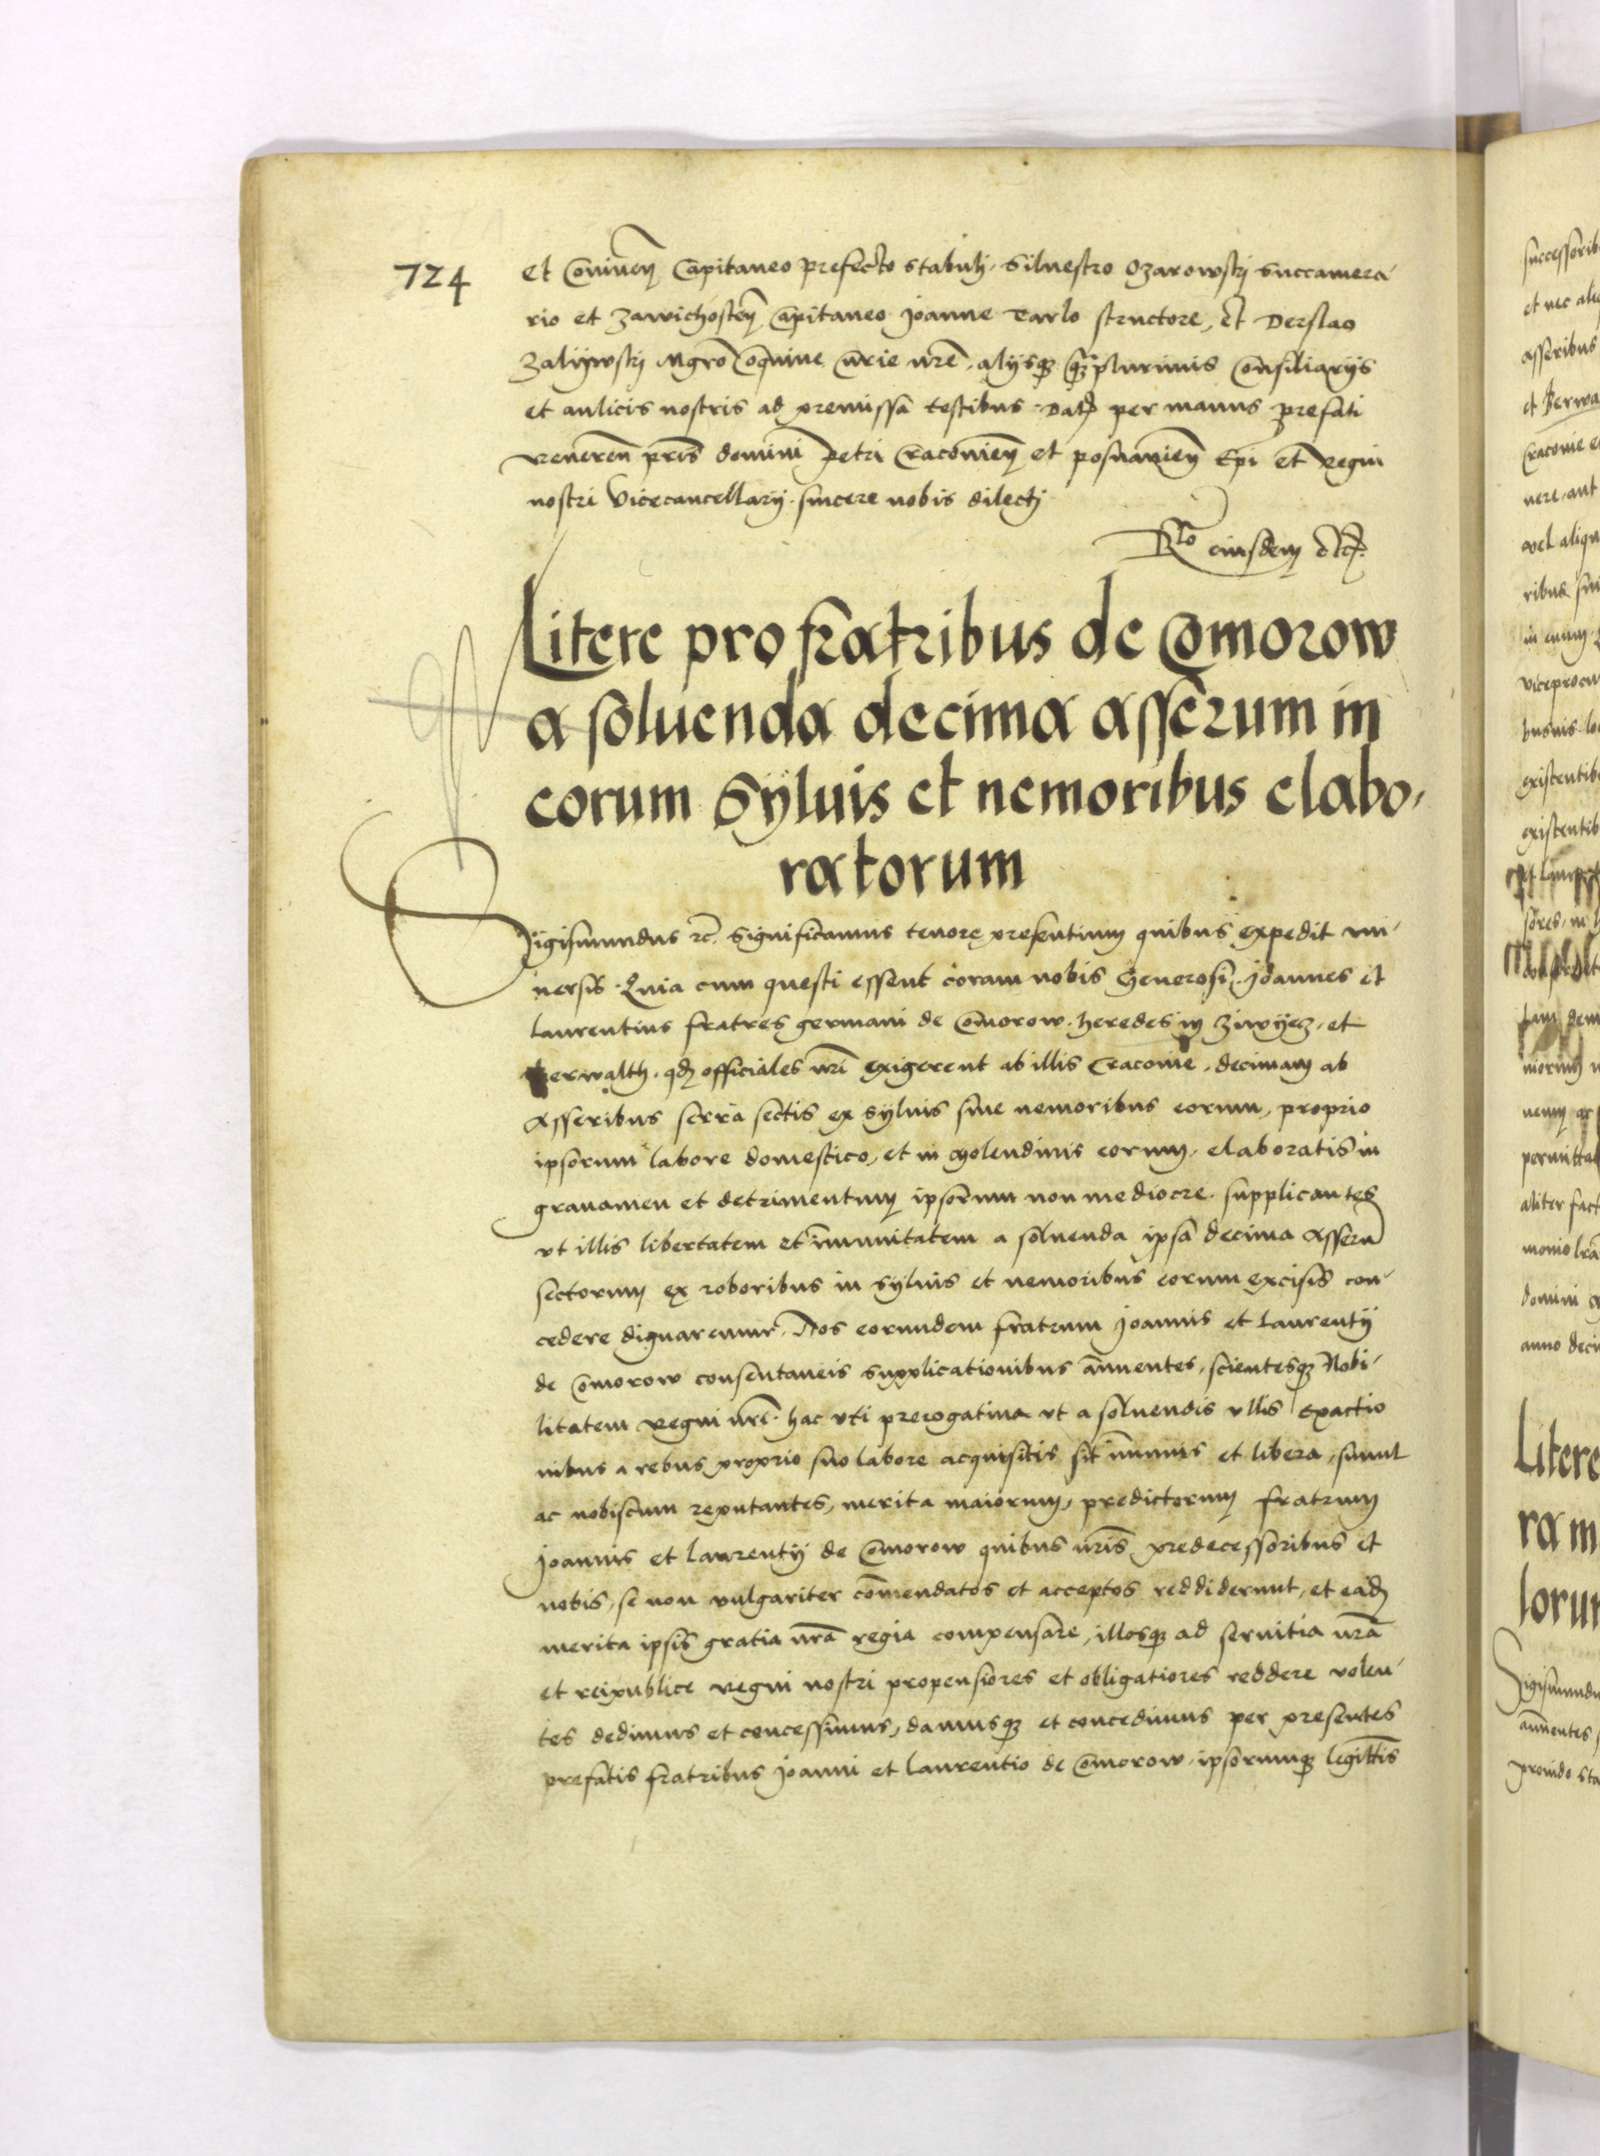 724
et Coninen Capitaneo prefecto stabuli, Siluestro Ozarowskj Succamera-
rio et Zawichosten Capitaneo Joanne Tarlo structore, et Derslao
Zalijwskj Mgro Coquine Curie nre, alijsq3 q3plurimis Consiliarijs
et aulicis nostris ad premissa testibus. Dat per manus prefati
Reneren pris domini Petri Cracouien et posnanien Epi et Regni
nostri Vicecancellarij. sincere nobis dilecti
Rlo eiusdem etc.
Litere pro fratribus de Comorow
a soluenda decima asserum in
eorum Sÿluis et nemoribus elabo-
ratorum
Sigismundus rc. Significamus tenore presentium quibus expedit vni-
uersis. Quia cum questi essent coram nobis Generosi Joannes et
Laurentius fratres germani de Comorow. heredes in Ziwyecz, et
Berwalth. qd officiales nri exigerent ab illis Cracouie, decimam ab
Asseribus serra sectis ex syluis siue nemoribus eorum, proprio
ipsorum labore domestico, et in molendinis eorum, elaboratis in
grauamen et detrimentum ipsorum non mediocre. supplicantes
vt illis libertatem et immunitatem a soluenda ipsa decima Asseru
sectorum ex roboribus in syluis et nemoribus eorum excisis con-
cedere dignaremur. Nos eorumdem fratrum Joannis et Laurentij
de Comorow consentaneis supplicationibus annuentes, scientesq3 Nobi-
litatem Regni nri. hac vti prerogatiua vt a soluendis vllis Exactio
nibus a rebus proprio suo labore acquisitis sit immunis et libera, simul
ac nobiscum reputantes, merita maiorum, predictorum fratrum
Joannis et Laurentij de Comorow quibus nris predecessoribus et
nobis, se non vulgariter comendatos et acceptos reddiderunt, et ead
merita ipsis gratia nra regia compensare, illosq3 ad seruitia nra
et reipublice regni nostri propensiores et obligatiores reddere volen-
tes dedimus et concessimus, damusq3 et concedimus per presentes
prefatis fratribus Joanni et Laurentio de Comorow, ipsorumq3 legittis
successorib
et nec
asseribus
et Berwa
Cracouie e
nere, aut
vel aliqu
ribus
viceprocu
existentib
existentib
sores
permitta
aliter fact
domini
anno deci
Litere
ra m
lorum
Sigismundu
annuentes